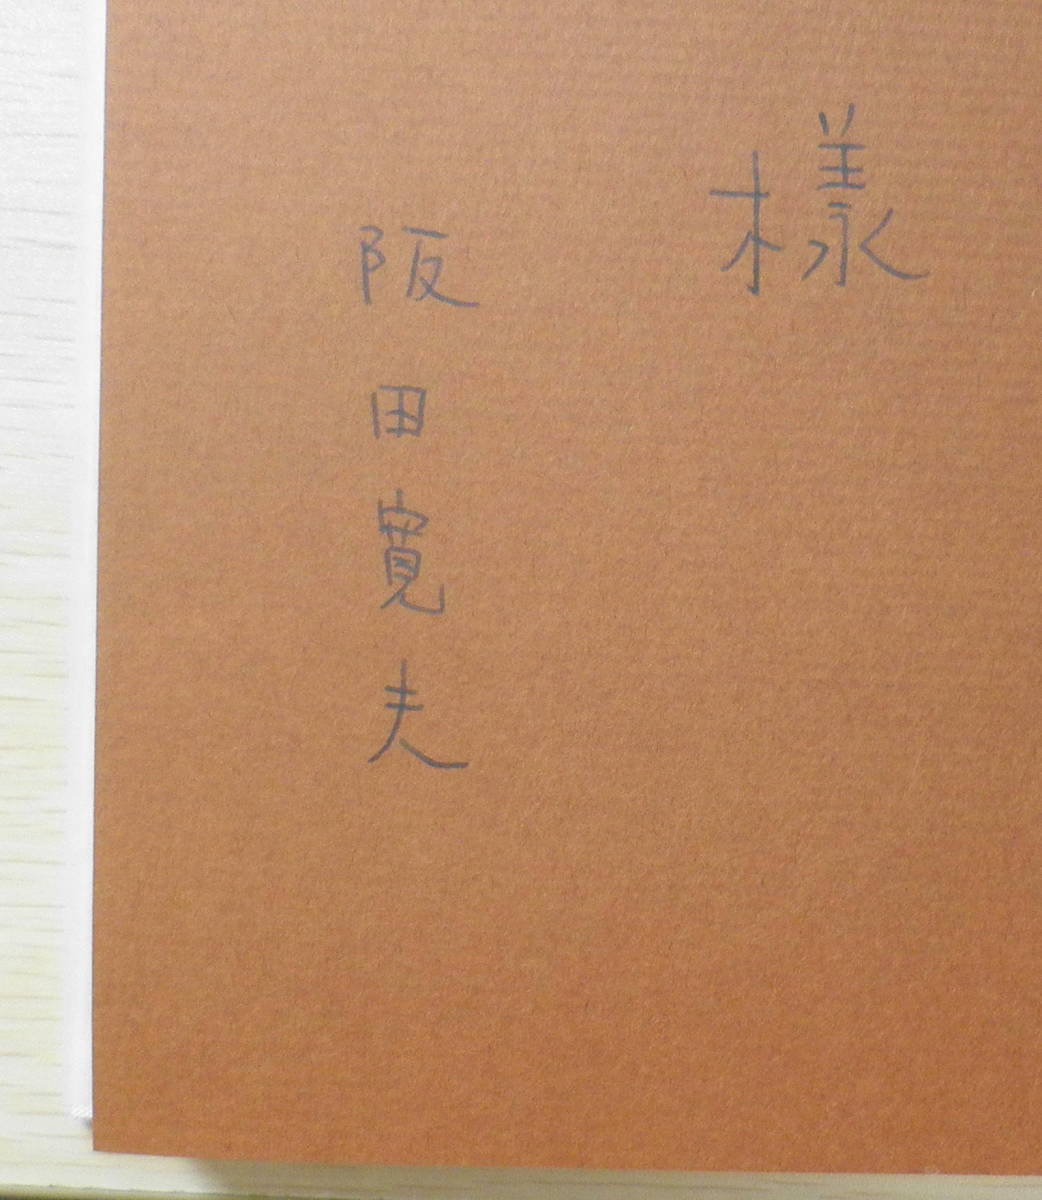 樣
阪田寛夫